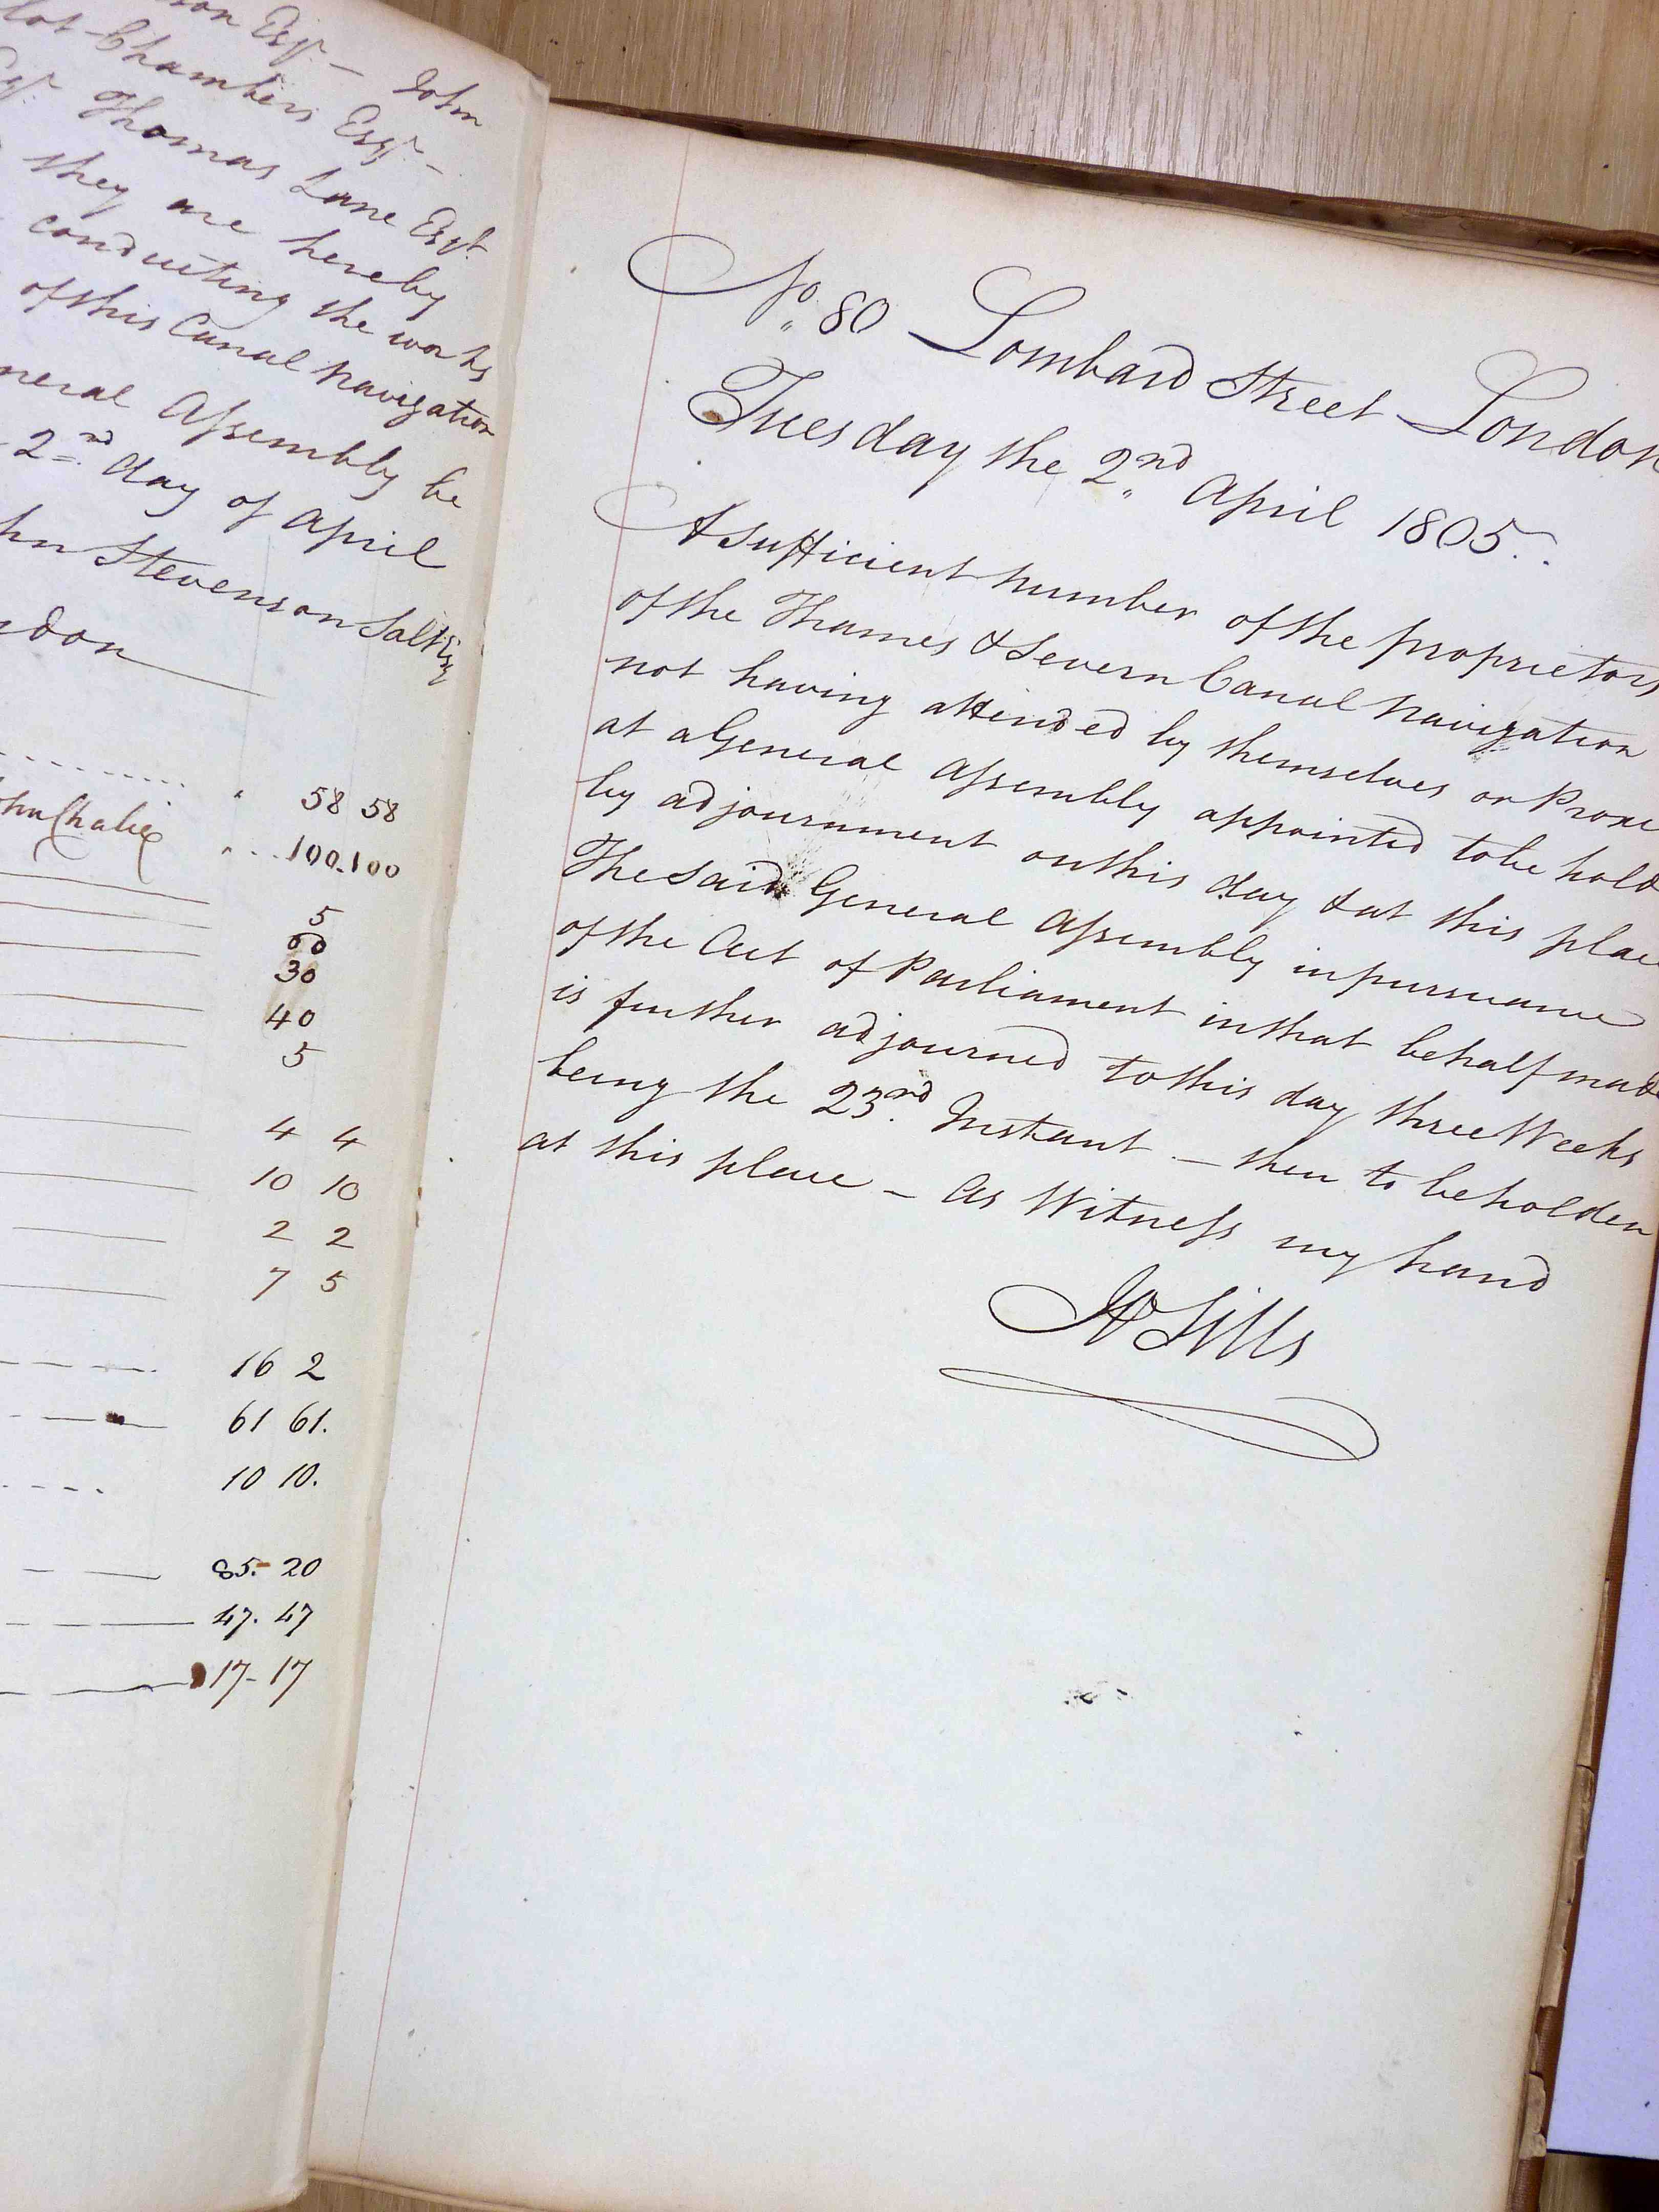 Esqr. — John
Chambers Esqr. —
Esqr. Thomas Lane Esqr.
they are hereby
conducting the works
of this Canal Navigation
neral Assembly be
2nd. day of April
hn Stevenson Salt
ndon
58 58
100 - 100
5
30
40
5
4 4
10 10
2 2
7 5
16 2
61 61.
10 10.
85. - 20
47. 47
17 - 17
No. 80 Lombard Street London
Tuesday the 2nd April 1805.
A Sufficient number of the proprietors
of the Thames & Severn Canal Navigation
not having attended by themselves or Proxe
at a General Assembly appointed to be hold
by adjournment on this day & at this place
The said General Assembly in pursuance
of the Act of Parliament in that behalf made
is further adjourned to this day three Weeks
being the 23rd. Instant — then to be holden
at this place — As Witness my hand
Sills